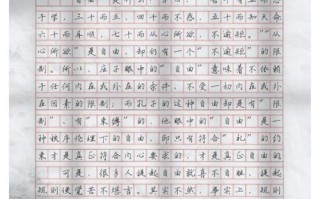 于学，三十而立，四十而不惑，五十而知天命
六十而耳顺，七十而从心所欲，不逾矩。”“从
心所欲”是自由，却仍有一个“不逾矩”的限
制。所以，庄子眼中的“自由”意味着不依赖
于任何内在或外在的条件，不受一切内在或外
在因素的限制；而孔子的这种自由却是有“限
制”、有“束缚”的，他“自由”是一
种秩序伦理下的自由，即只有符合“礼”的约
束才是真正符合内心要求的，才是真正自由的
的 可是，很多人提起自由就喜不自胜，提起
规则便觉苦不堪言，其实不然，事实上，规则